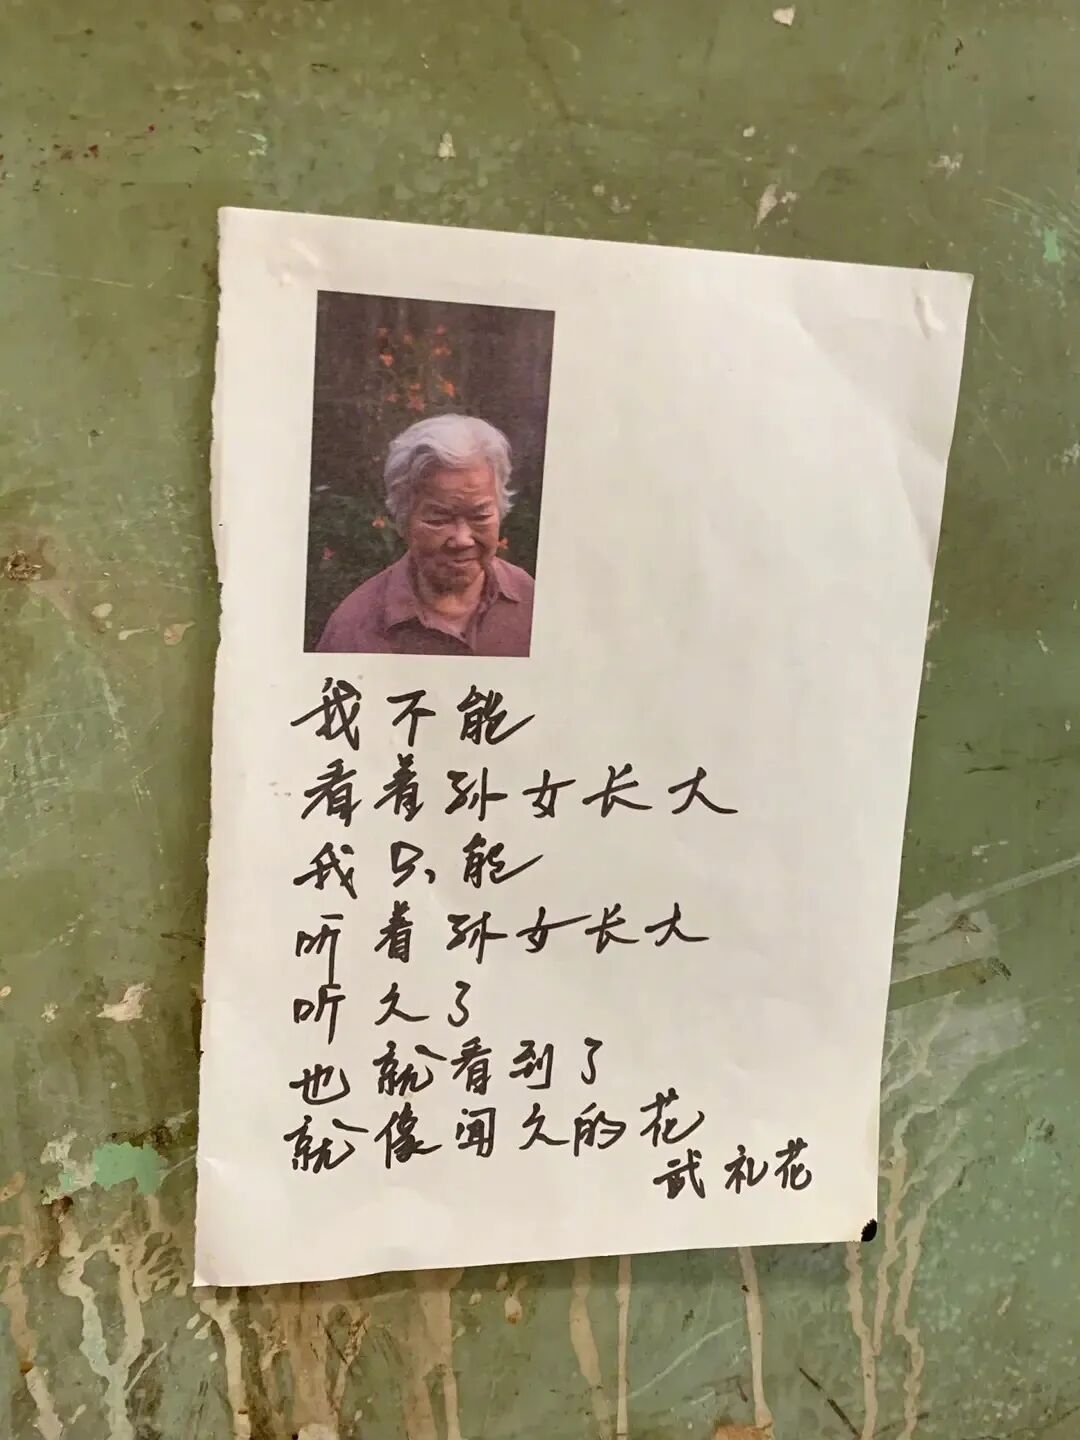 我不能
看着孙女长大
我只能
听着孙女长大
听久了
也就看到了
就像闻久的花
武礼花